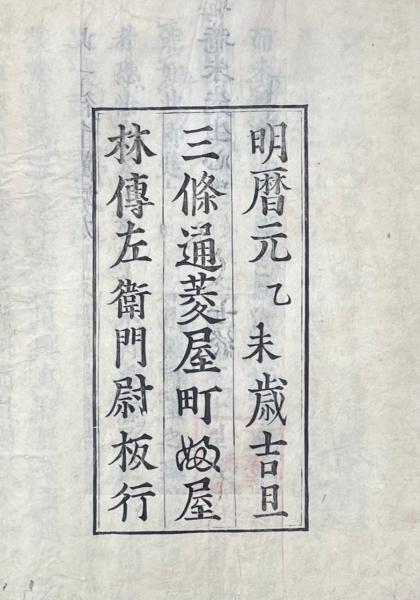 明暦元乙未歳吉旦
三條通菱屋町婦屋
林傳左衛門尉板行